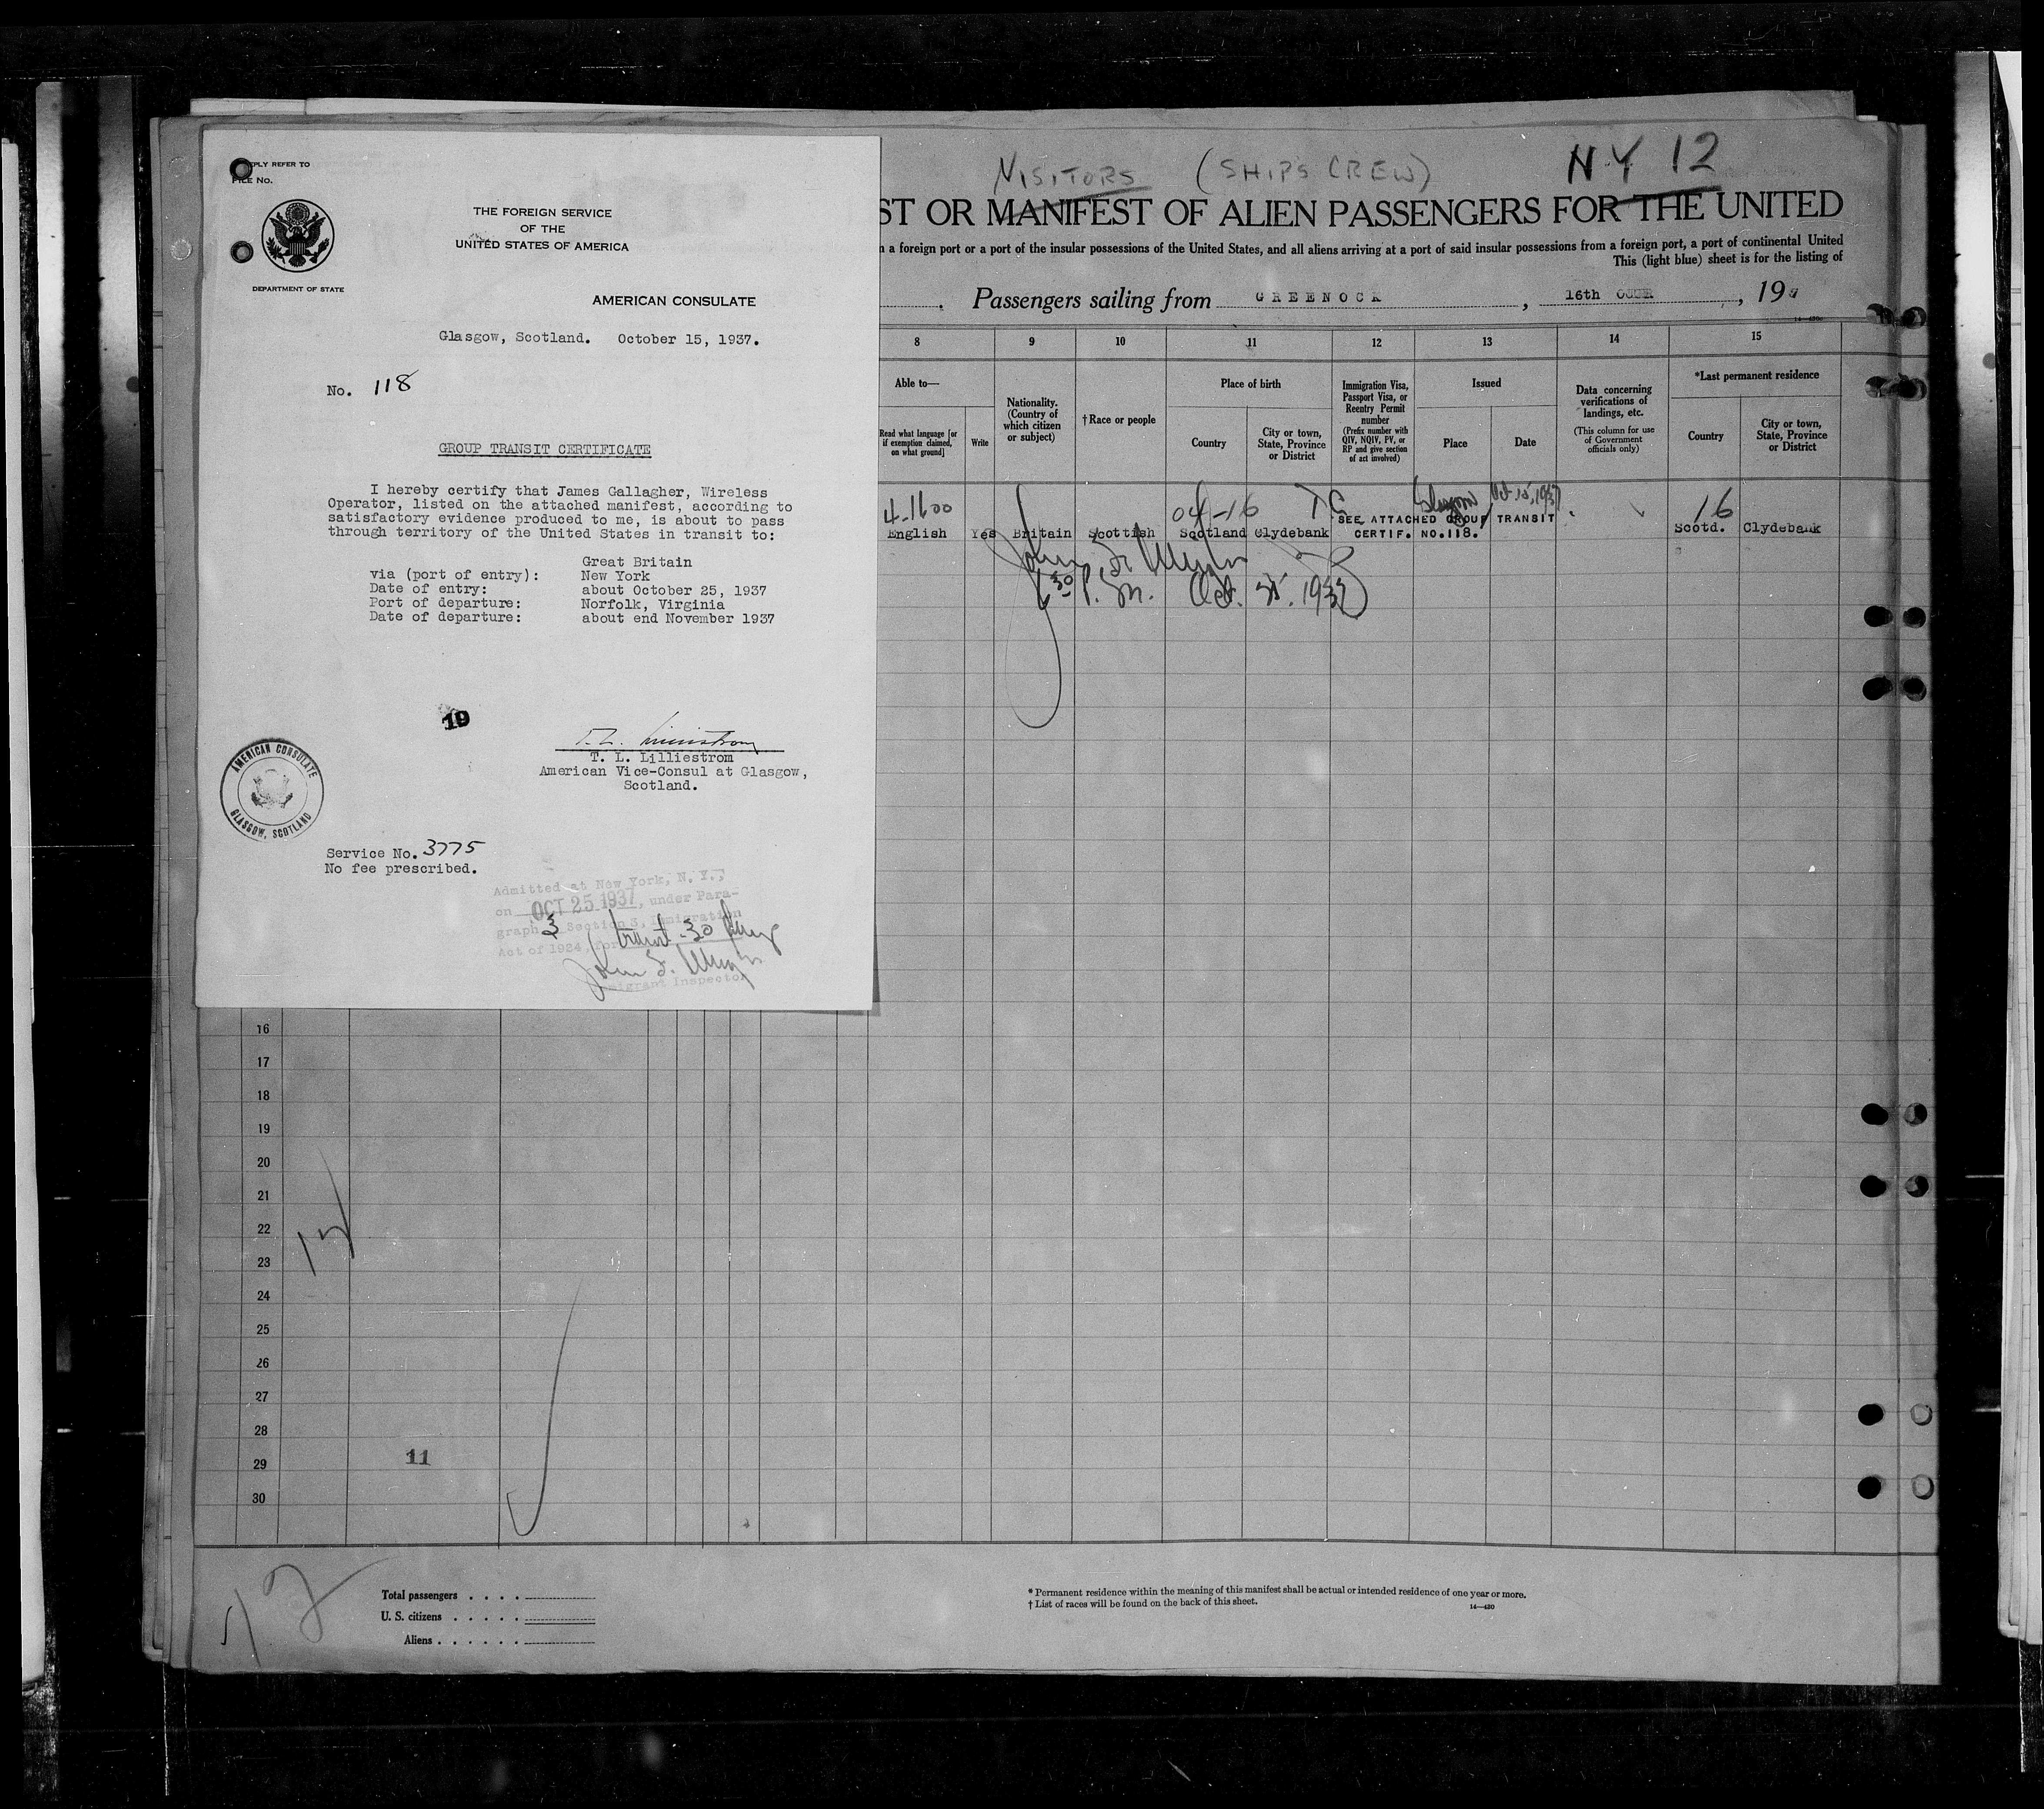 PLY REFER TO
FILE No.
DEPARTMENT OF STATE
THE FOREIGN SERVICE
OF THE
UNITED STATES OF AMERICA
AMERICAN CONSULATE
Glasgow, Scotland. October 15, 1937.
No. 118
GROUP TRANSIT CERTIFICATE
I hereby certify that James Gallagher, Wireless
Operator, listed on the attached manifest, according to
satisfactory evidence produced to me, is about to pass
through territory of the United States in transit to:
Great Britain
via (port of entry): New York
Date of entry: about October 25, 1937
Port of departure: Norfolk, Virginia
Date of departure: about end November 1937
19
T. L. Lilliestrom
American Vice-Consul at Glasgow,
Scotland.
AMERICAN CONSULATE
GLASGOW, SCOTLAND
Service No. 3775
No fee prescribed.
Admitted at New York, N. Y.,
on OCT 25 1937, under Para-
graph 3 Section 3, Immigration
Act of 1924, for transit - 30 days
Immigrant Inspector
VISITORS (SHIPS CREW) NY 12
ST OR MANIFEST OF ALIEN PASSENGERS FOR THE UNITED
a foreign port or a port of the insular possessions of the United States, and all aliens arriving at a port of said insular possessions from a foreign port, a port of continental United
This (light blue) sheet is for the listing of
Passengers sailing from GREENOCK, 16th, 19
8 9 10 11 12 13 14 15
Able to—
Read what language [or if exemption claimed, on what ground]
Write
Nationality. (Country of which citizen or subject)
†Race or people
Place of birth
Country
City or town, State, Province or District
Immigration Visa, Passport Visa, or Reentry Permit number
(Prefix number with QIV, NQIV, PV, or RP and give section of act involved)
Issued
Place
Date
Data concerning verifications of landings, etc.
(This column for use of Government officials only)
*Last permanent residence
Country
City or town, State, Province or District
4-1600 04-16 TC Glasgow Oct 15, 1937 16
English Yes Britain Scottish Scotland Clydebank SEE ATTACHED GROUP TRANSIT Scotd. Clydebank
CERTIF. NO.118.
6 30 P.M. Oct. 25. 1937
16
17
18
19
20
21
22
23
24
25
26
27
28
29
30
12
11
12
Total passengers
U. S. citizens
Aliens
* Permanent residence within the meaning of this manifest shall be actual or intended residence of one year or more.
† List of races will be found on the back of this sheet.
14—430